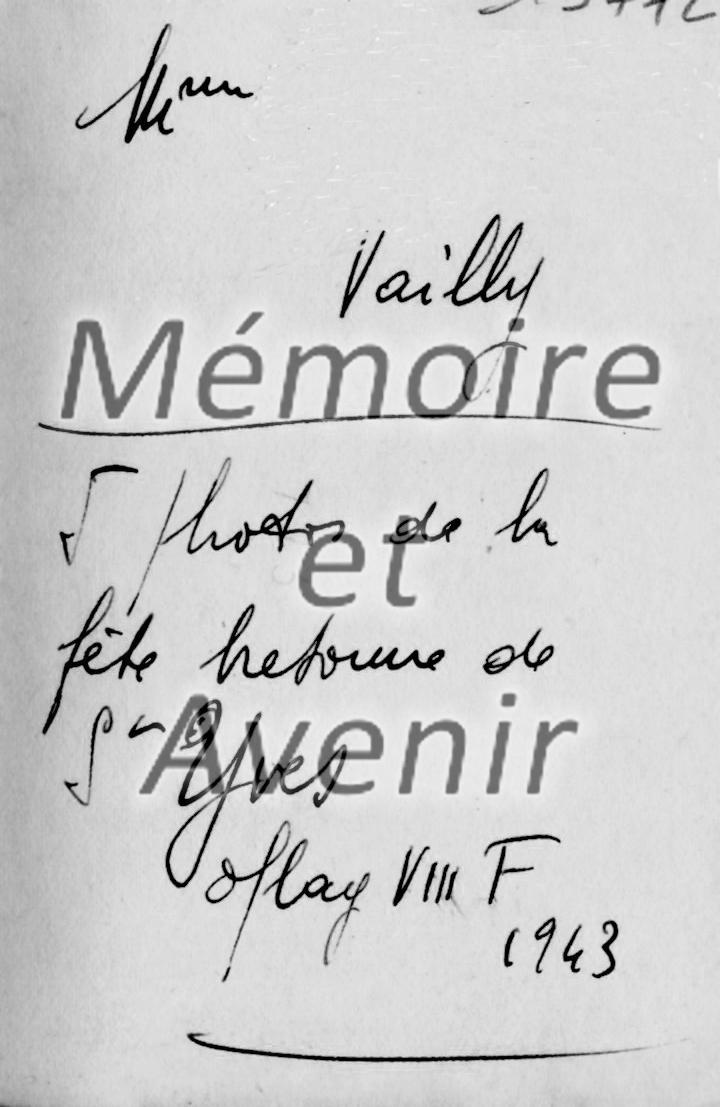 Mémoire
et
Avenir
Vailly
5 photos de la
fête bretonne de
St Yves
oflag VIII F
1943